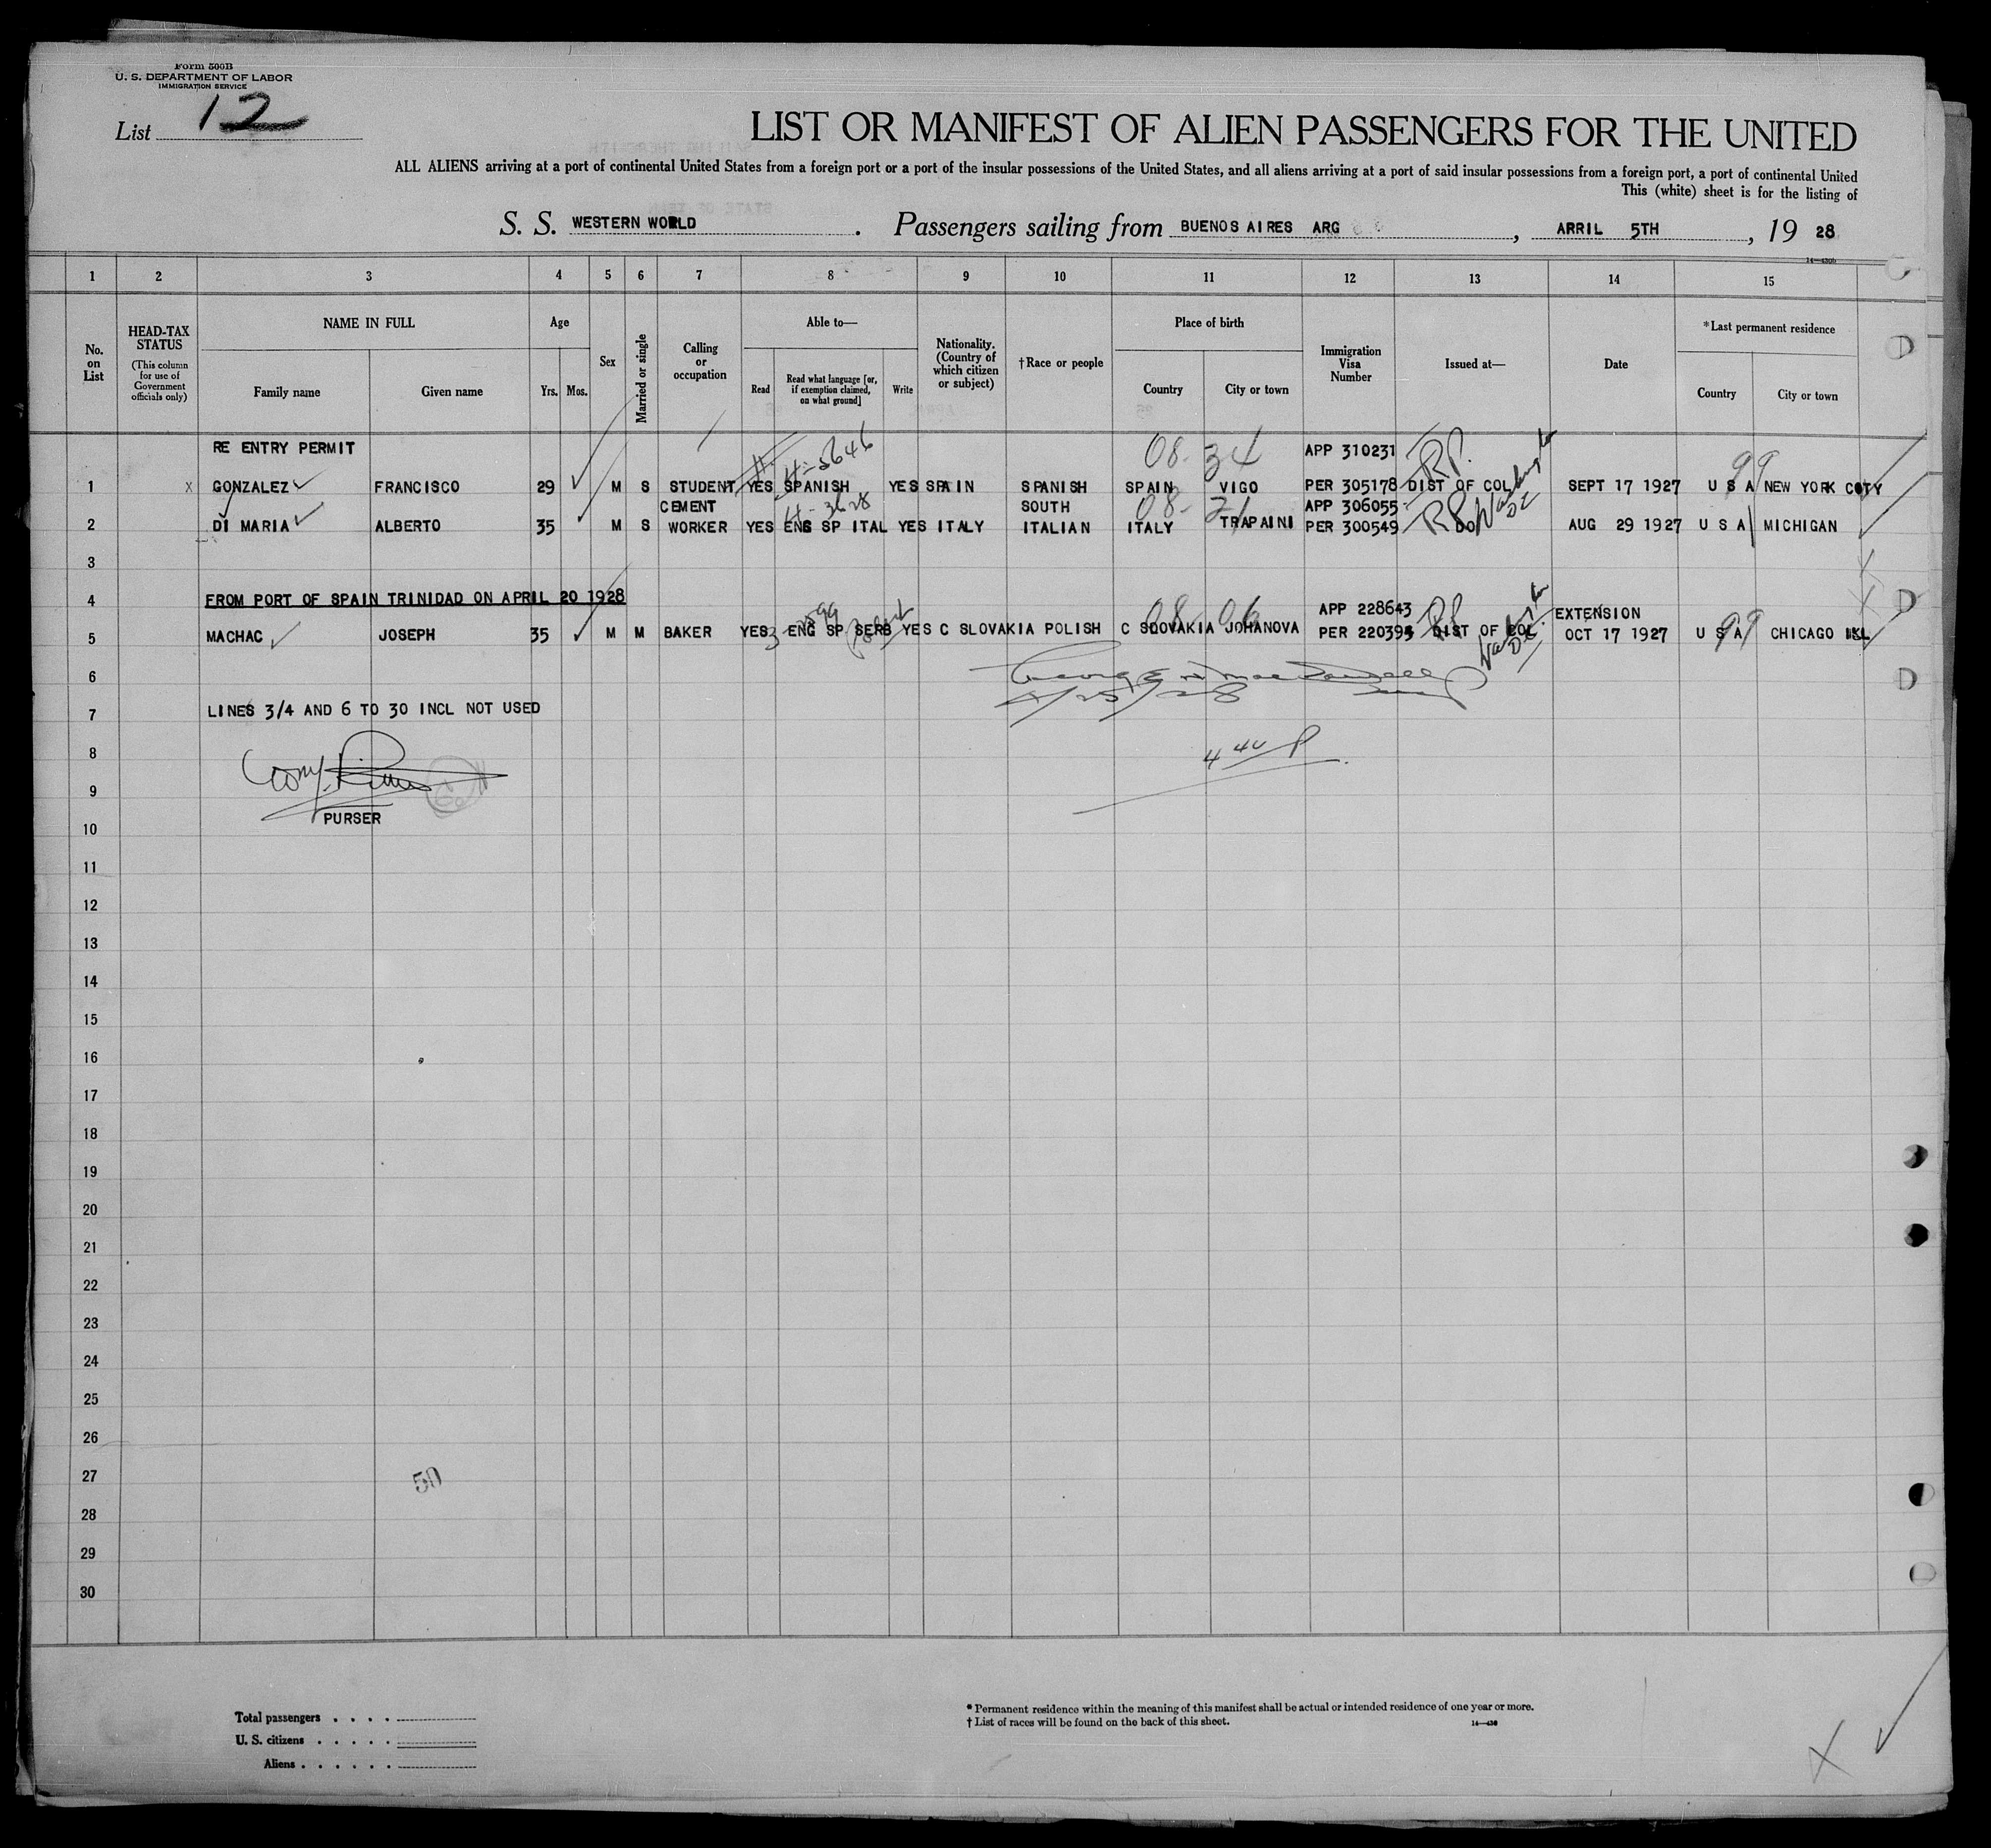 Form 500B
U. S. DEPARTMENT OF LABOR
IMMIGRATION SERVICE
List 12
LIST OR MANIFEST OF ALIEN PASSENGERS FOR THE UNITED
ALL ALIENS arriving at a port of continental United States from a foreign port or a port of the insular possessions of the United States, and all aliens arriving at a port of said insular possessions from a foreign port, a port of continental United
This (white) sheet is for the listing of
S. S. WESTERN WORLD . Passengers sailing from BUENOS AIRES ARG , ARRIL 5TH , 19 28
1 2 3 4 5 6 7 8 9 10 11 12 13 14 15
No. on List
HEAD-TAX STATUS
(This column for use of Government officials only)
NAME IN FULL
Family name Given name
Age
Yrs. Mos.
Sex
Married or single
Calling or occupation
Able to—
Read
Read what language [or, if exemption claimed, on what ground]
Write
Nationality. (Country of which citizen or subject)
†Race or people
Place of birth
Country City or town
Immigration Visa Number
Issued at—
Date
*Last permanent residence
Country City or town
RE ENTRY PERMIT 08- 34 APP 310231 RP. 99
1 x GONZALEZ FRANCISCO 29 M S STUDENT YES SPANISH YES SPAIN SPANISH SPAIN VIGO PER 305178 DIST OF COL SEPT 17 1927 U S A NEW YORK COTY
CEMENT SOUTH APP 306055
2 DI MARIA ALBERTO 35 M S WORKER YES ENG SP ITAL YES ITALY ITALIAN ITALY TRAPAINI PER 300549 DO AUG 29 1927 U S A MICHIGAN
3
4 FROM PORT OF SPAIN TRINIDAD ON APRIL 20 1928 08 06 APP 228643 EXTENSION
5 MACHAC JOSEPH 35 M M BAKER YES ENG SP SERB YES C SLOVAKIA POLISH C SLOVAKIA JOHANOVA PER 220394 DIST OF COL OCT 17 1927 U S A 99 CHICAGO
6
4/25/28
7 LINES 3/4 AND 6 TO 30 INCL NOT USED
8
4 40 P
9
PURSER
10
11
12
13
14
15
16
17
18
19
20
21
22
23
24
25
26
27
50
28
29
30
Total passengers . . . .
U. S. citizens . . . . .
Aliens . . . . . .
* Permanent residence within the meaning of this manifest shall be actual or intended residence of one year or more.
† List of races will be found on the back of this sheet.